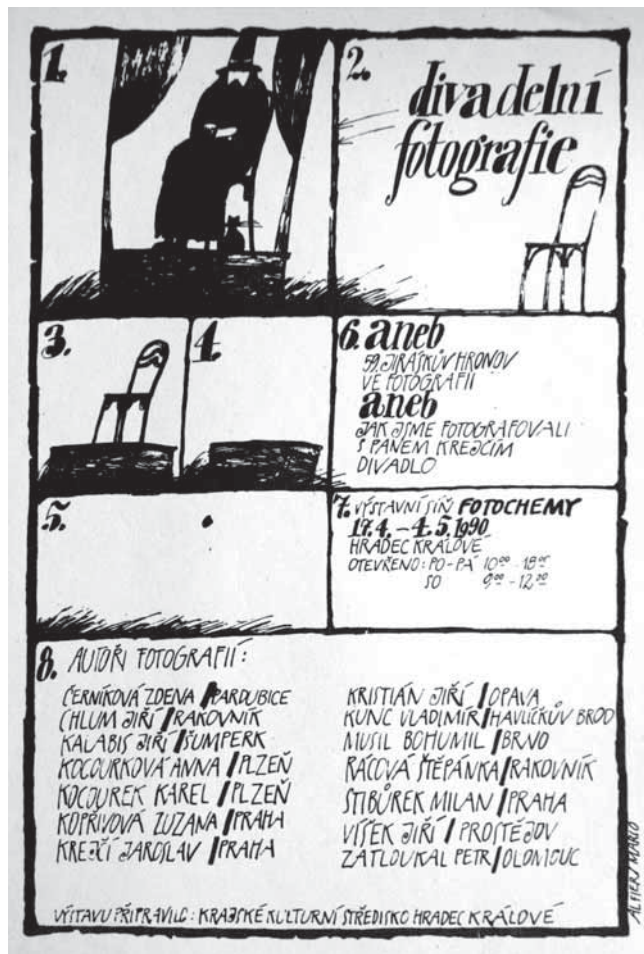 1.
2. divadelní
fotografie
3.
4.
6. aneb
59. JIRÁSKŮV HRONOV
VE FOTOGRAFII
aneb
JAK JSME FOTOGRAFOVALI
S PANEM KREJČÍM
DIVADLO
5.
7. VÝSTAVNÍ SÍŇ FOTOCHEMY
17.4. – 4.5. 1990
HRADEC KRÁLOVÉ
OTEVŘENO: PO - PÁ 10⁰⁰ - 18⁰⁰
SO 9⁰⁰ - 12⁰⁰
8. AUTOŘI FOTOGRAFIÍ:
ČERNÍKOVÁ ZDENA / PARDUBICE
CHLUM JIŘÍ / RAKOVNÍK
KALABIS JIŘÍ / ŠUMPERK
KOCOURKOVÁ ANNA / PLZEŇ
KOCOUREK KAREL / PLZEŇ
KOPŘIVOVÁ ZUZANA / PRAHA
KREJČÍ JAROSLAV / PRAHA
KRISTIÁN JIŘÍ / OPAVA
KUNC VLADIMÍR / HAVLÍČKŮV BROD
MUSIL BOHUMIL / BRNO
RÁCOVÁ ŠTĚPÁNKA / RAKOVNÍK
STIBŮREK MILAN / PRAHA
VÍŠEK JIŘÍ / PROSTĚJOV
ZATLOUKAL PETR / OLOMOUC
VÝSTAVU PŘIPRAVILO: KRAJSKÉ KULTURNÍ STŘEDISKO HRADEC KRÁLOVÉ